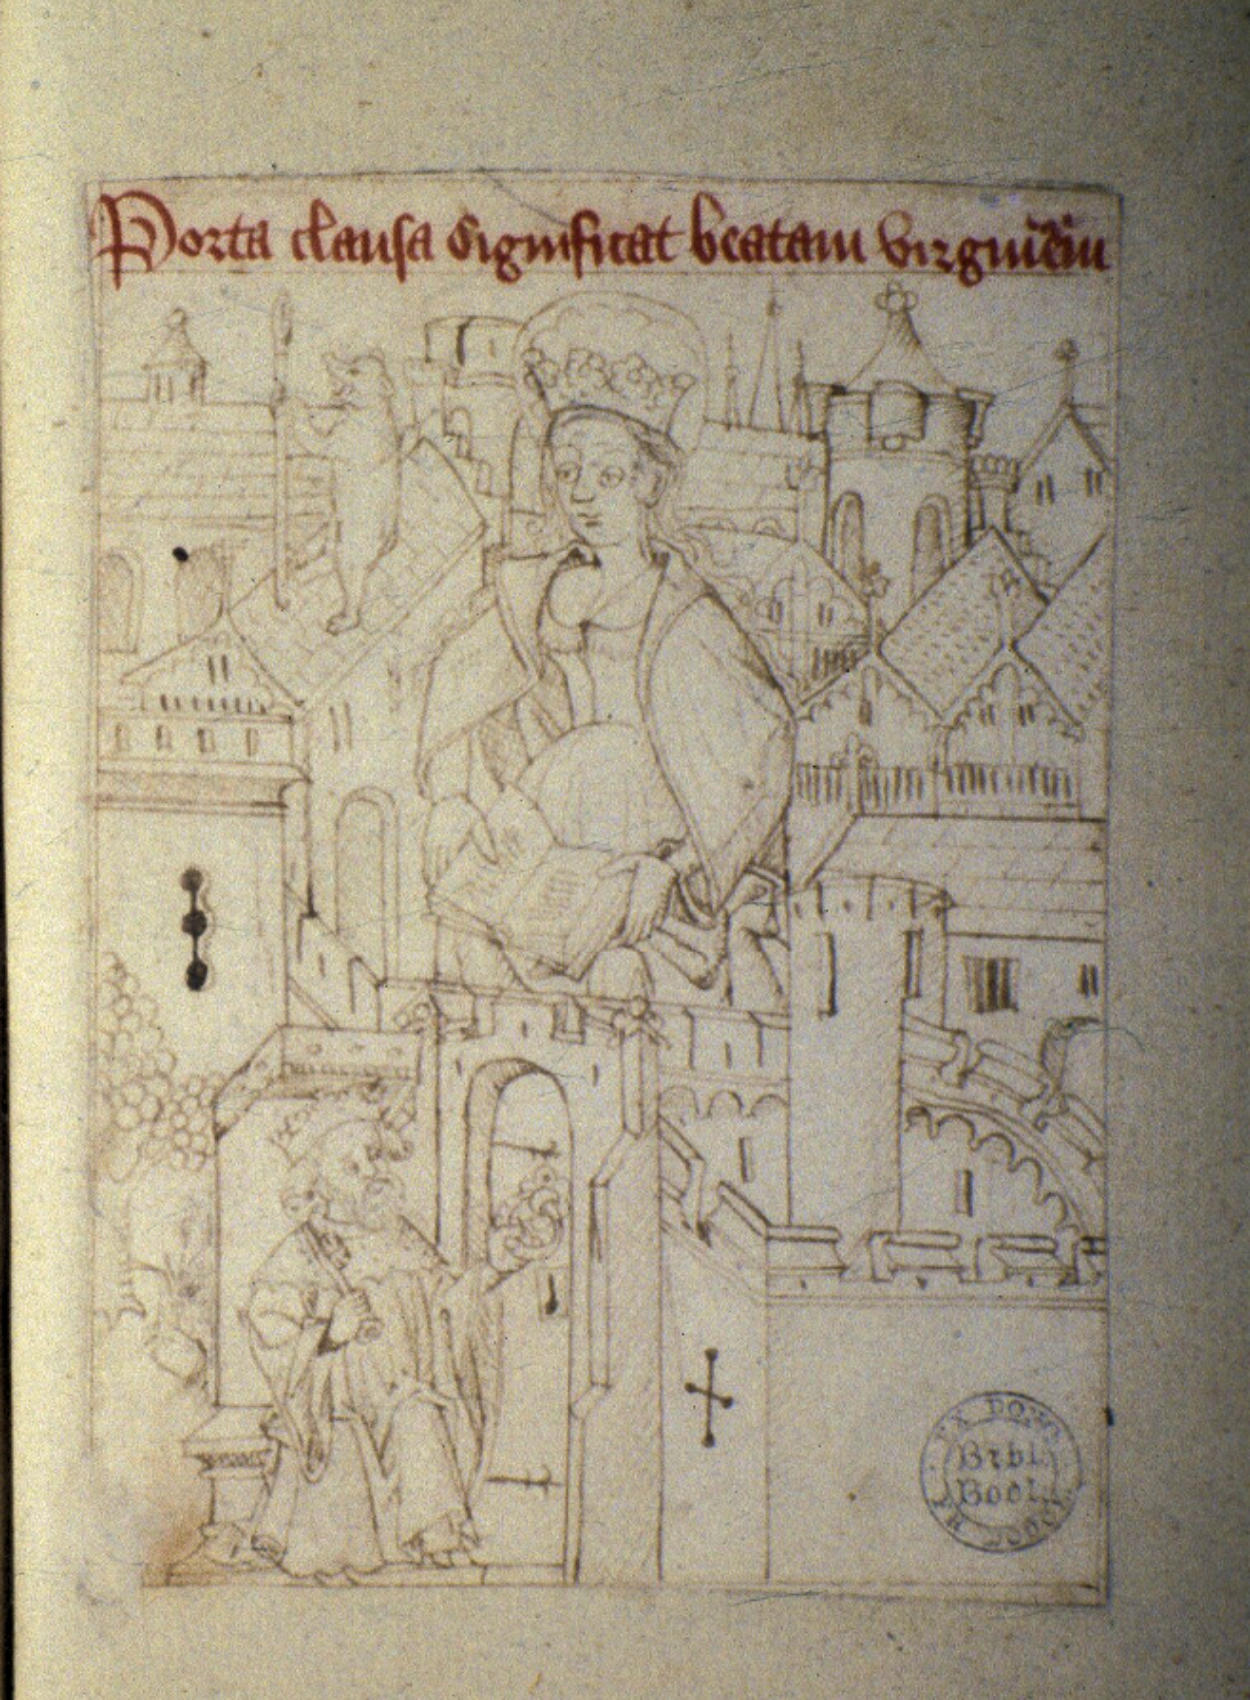 Porta clausa significat beatam virginem
EX DONO
Bibl.
Bodl.